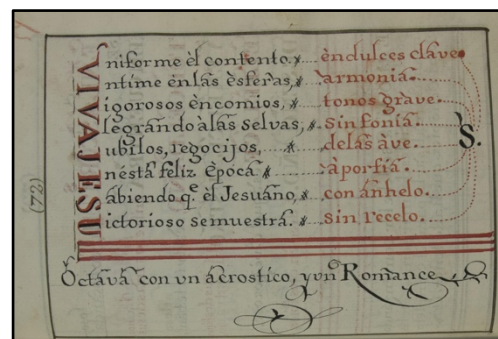 (72)
VIVAJESU
niforme èl contento. èndulces clave
ntime ènlas èsferas, armonia.
igorosos èncomios, tonos gràve.
legrando àlas selvas, sinfonia.
ubilos, regocijos, delas àve.
nèsta feliz Època àporfia.
abiendo q.e èl Jesuàno, con ànhelo.
ictorioso semuestra. sin recelo.
S.
Octava con vn àcrostico, yvn Romance